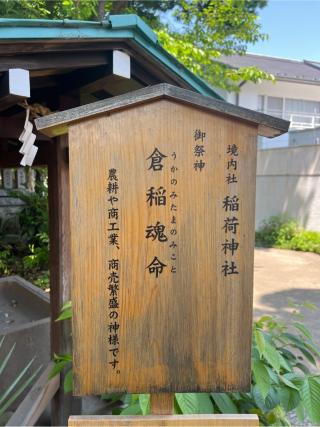 境内社 稲荷神社
御祭神
うかのみたまのみこと
倉稲魂命
農耕や商工業、商売繁盛の神様です。